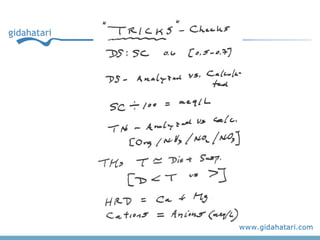 gidahatari
"TRICKS" - Checks
DS:SC 0.6 [0.5-0.7]
DS- Analyzed vs. Calcula-
ted
SC ÷ 100 = meq/L
TN - Analyzed vs Calc.
[Org/NH3/NO2/NO3]
TMs T ≃ Dis + Susp.
[D < T vs >]
HRD = Ca + Mg
Cations = Anions (meq/L)
www.gidahatari.com